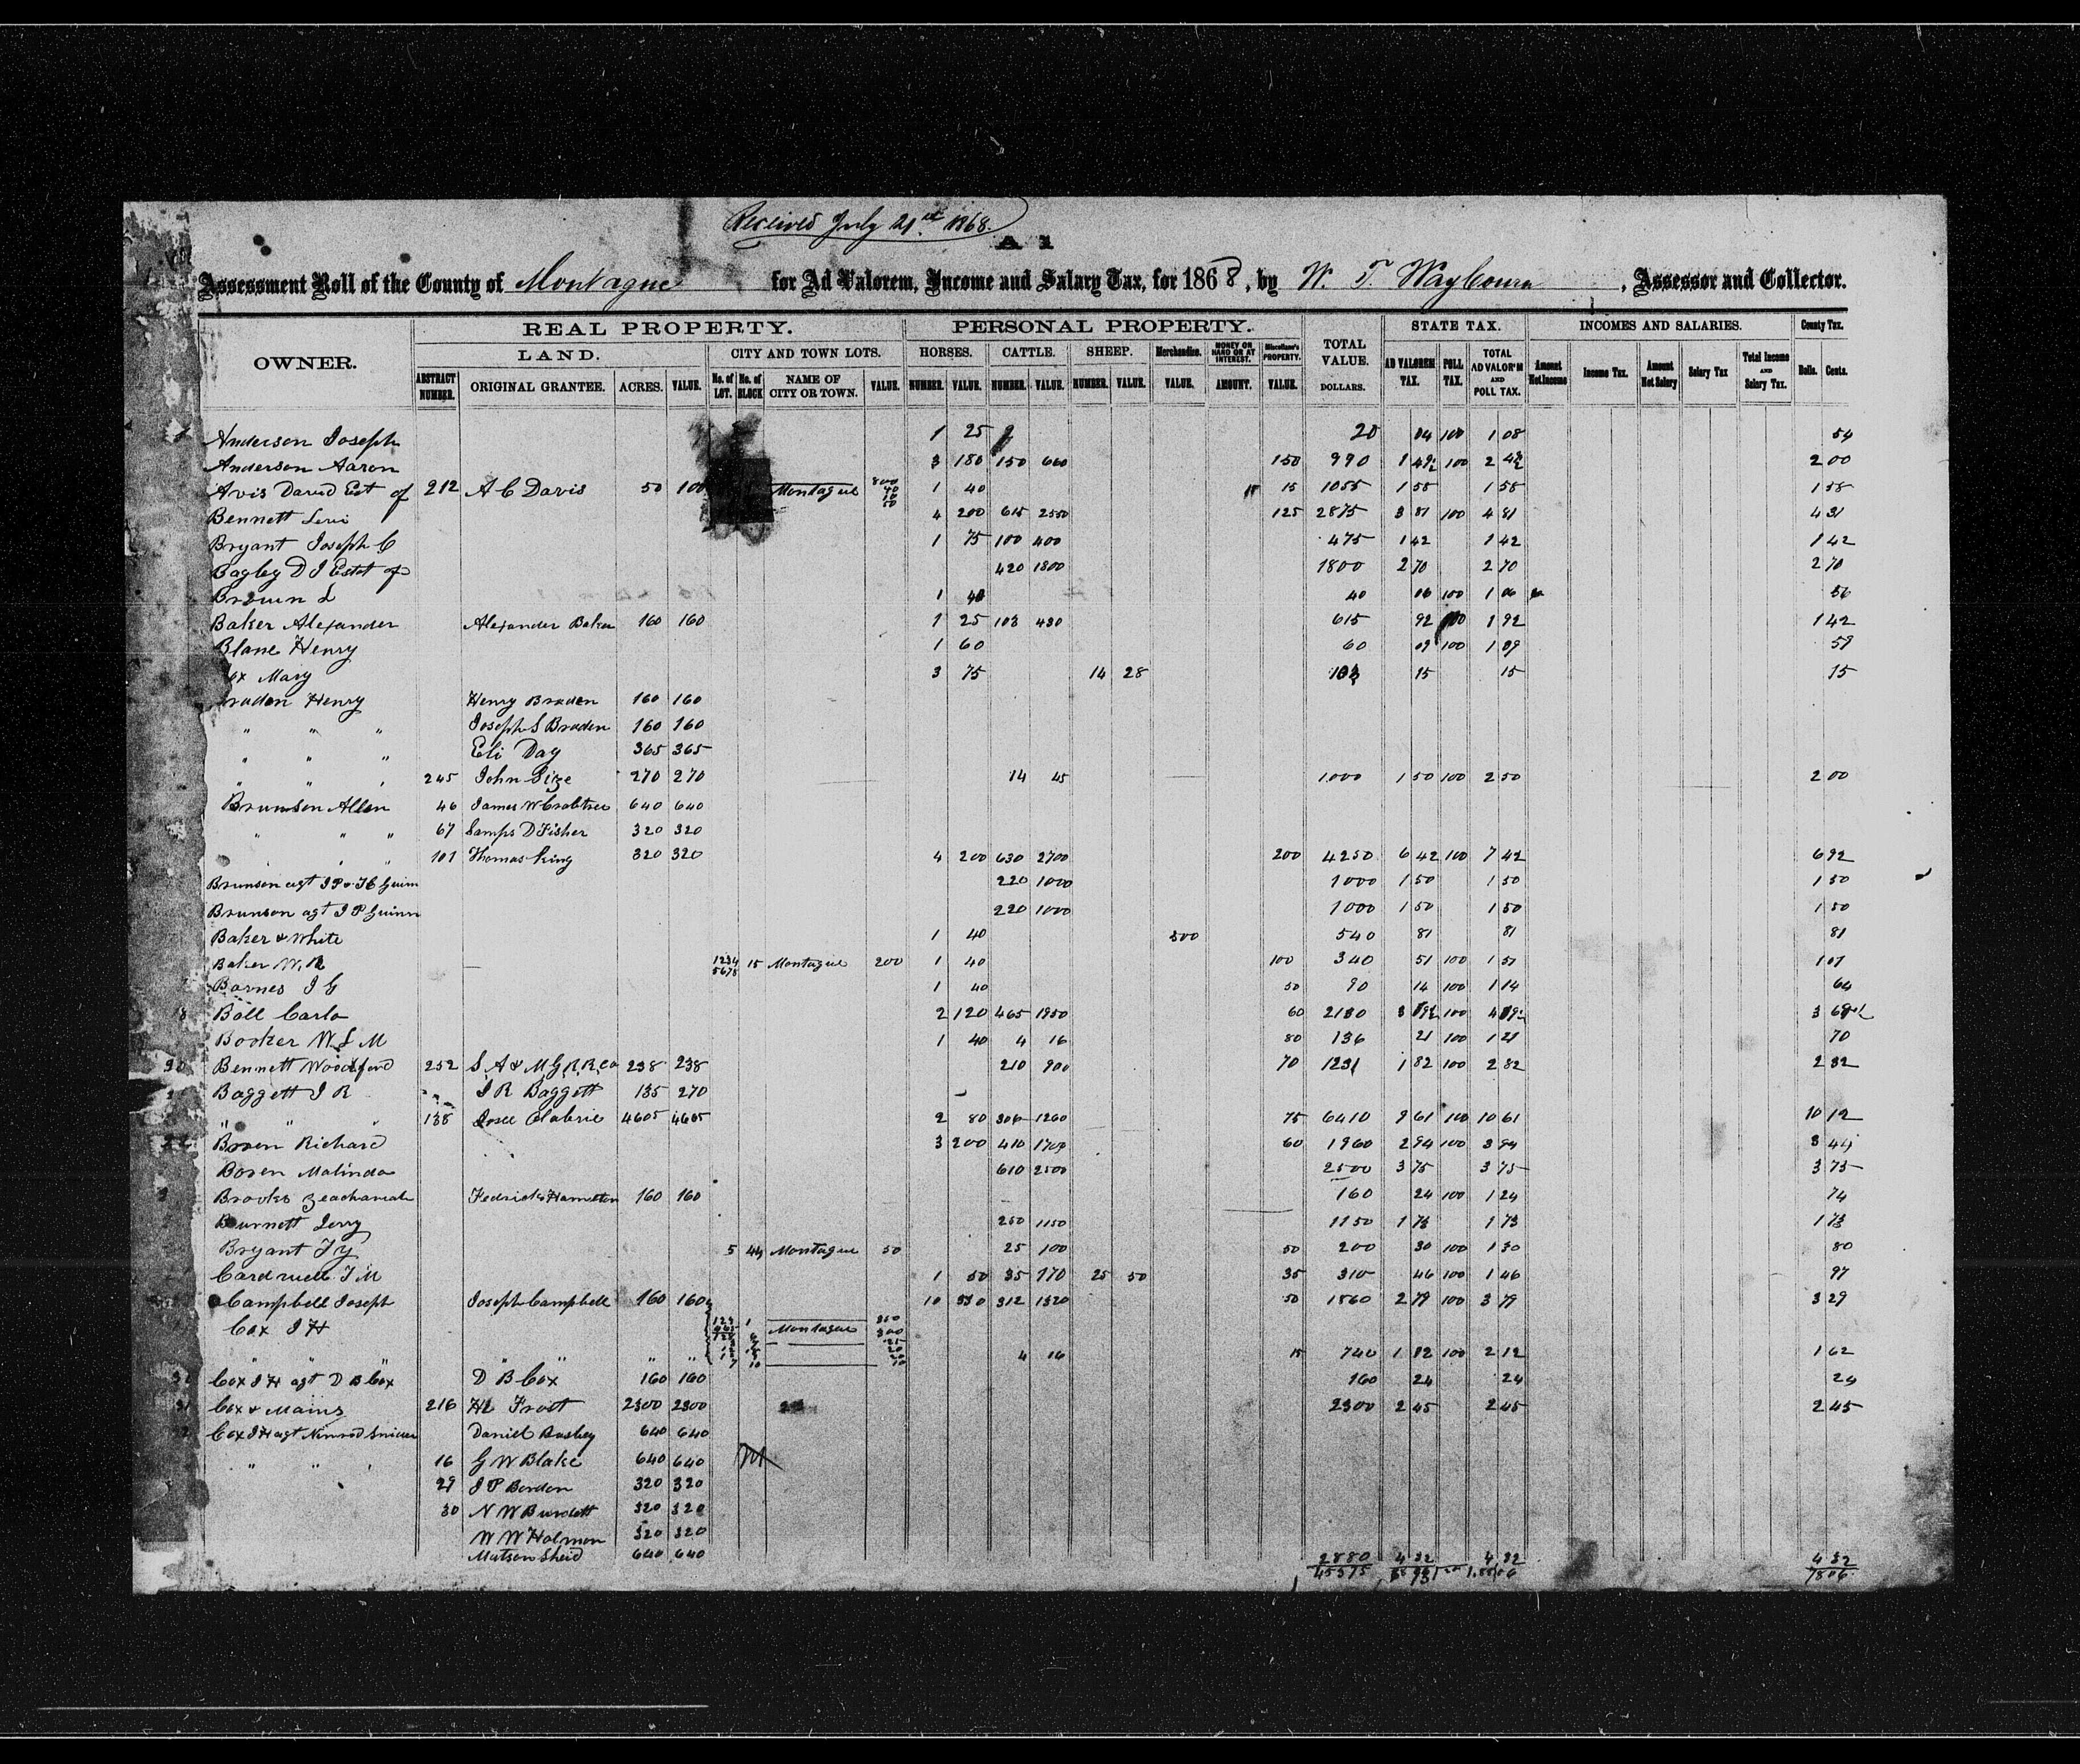 Received July 21st 1868.
A 1
Assessment Roll of the County of Montague for Ad Valorem, Income and Salary Tax, for 1868, by W. T. Waybourn, Assessor and Collector.
OWNER. REAL PROPERTY. PERSONAL PROPERTY. TOTAL VALUE. DOLLARS. STATE TAX. INCOMES AND SALARIES. County Tax.
LAND. CITY AND TOWN LOTS. HORSES. CATTLE. SHEEP. Merchandise. MONEY ON HAND OR AT INTEREST. Miscellane's PROPERTY. AD VALOREM TAX. POLL TAX. TOTAL AD VALOR'M AND POLL TAX. Amount Net Income Income Tax. Amount Net Salary Salary Tax Total Income AND Salary Tax. Dolls. Cents.
ABSTRACT NUMBER. ORIGINAL GRANTEE. ACRES. VALUE. No. of LOT. No. of BLOCK NAME OF CITY OR TOWN. VALUE. NUMBER. VALUE. NUMBER. VALUE. NUMBER. VALUE. VALUE. AMOUNT. VALUE.
Anderson Joseph 1 25 04 100 1 08 54
Anderson Aaron 3 180 150 660 150 990 1 49½ 100 2 49½ 2 00
Avis David Est of 212 A C Davis 50 100 Montague 800 40 1 40 15 1055 1 58 1 58 1 58
Bennett Levi 4 200 615 2550 125 2875 3 81 100 4 81 4 31
Bryant Joseph C 1 75 100 400 475 1 42 1 42 1 42
Bagley D J Estat of 420 1800 1800 2 70 2 70 2 70
Brown L 1 40 40 06 100 1 06 56
Baker Alexander Alexander Baker 160 160 1 25 103 430 615 92 100 1 92 1 42
Blane Henry 1 60 60 09 100 1 09 59
ox Mary 3 75 14 28 103 15 15 15
raden Henry Henry Braden 160 160
" " " Joseph S Braden 160 160
" " " Eli Day 365 365
" " " 245 John Size 270 270 14 45 1000 1 50 100 2 50 2 00
Brunson Allen 46 James W Crabtree 640 640
" " " 67 Samps D Fisher 320 320
" " " 101 Thomas King 320 320 4 200 630 2700 200 4250 6 42 100 7 42 6 92
Brunson agt J P & J C Guinn 220 1000 1000 1 50 1 50 1 50
Brunson agt J P Guinn 220 1000 1000 1 50 1 50 1 50
Baker & White 1 40 500 540 81 81 81
Baker W. R 1234 5678 15 Montague 200 1 40 100 340 51 100 1 51 1 01
Barnes J G 1 40 50 90 14 100 1 14 64
Ball Carlo 2 120 465 1950 60 2130 3 19½ 100 4 19½ 3 69½
Booker W L M 1 40 4 16 80 136 21 100 1 21 70
Bennett Woodford 252 S A & M G R R Co 238 238 210 900 70 1231 1 82 100 2 82 2 32
Baggett J R J R Baggett 135 270
" " " 138 Josee Olabrie 4605 4605 2 80 306 1260 75 6410 9 61 100 10 61 10 12
22 Boren Richard 3 200 410 1700 60 1960 2 94 100 3 94 3 44
Boren Malinda 610 2500 2500 3 75 3 75 3 75
Brooks Zeachariah Fedrick Hamelton 160 160 160 24 100 1 24 74
Burnett Jerry 250 1150 1150 1 73 1 73 1 73
Bryant J Y 5 44 Montague 50 25 100 50 200 30 100 1 30 80
Cardwell J M 1 50 35 170 25 50 35 310 46 100 1 46 97
Campbell Joseph Joseph Campbell 160 160 10 330 312 1320 50 1860 2 79 100 3 79 3 29
Cox J H 1 Montague 300
" " " " " " 4 16 15 740 1 12 100 2 12 1 62
Cox J H agt D B Cox D B Cox 160 160 160 24 24 24
Cox & Mains 216 HL Frost 2300 2300 2300 2 45 2 45 2 45
Cox J H agt Nimrod Daniel Busbey 640 640
" " " 16 G W Blake 640 640
29 J P Borden 320 320
30 N W Burdett 320 320
W W Holmon 320 320
Matson Sheid 640 640 2880 4 32 4 32 4 32
45375